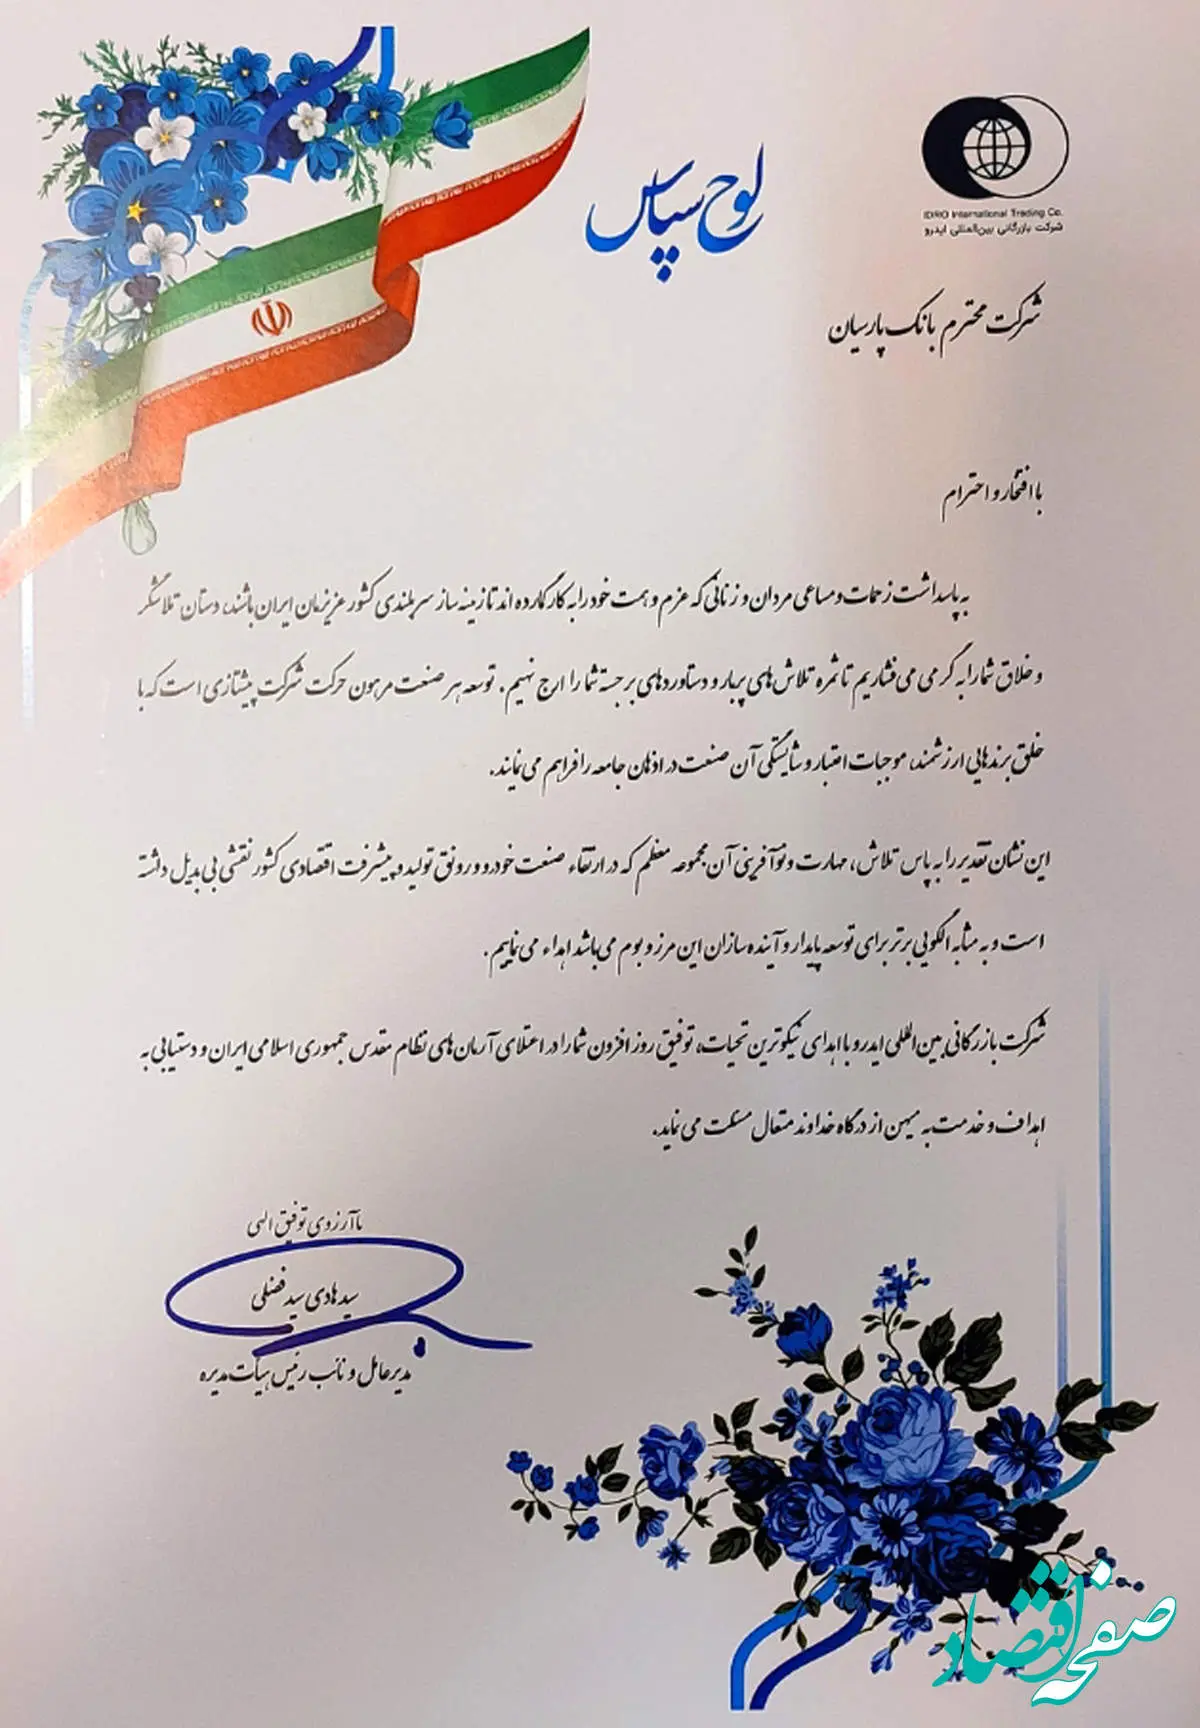 لوح سپاس
IDRO International Trading Co.
شرکت بازرگانی بین‌المللی ایدرو
شرکت محترم بانک پارسیان
با افتخار و احترام
به پاسداشت زحمات و مساعی مردان و زنانی که عزم و همت خود را به کار گمارده اند تا زمینه ساز سربلندی کشور عزیزمان ایران باشند، دستان تلاشگر
و خلاق شما را به گرمی می فشاریم تا ثمره تلاش‌های پربار و دستاوردهای برجسته شما را ارج نهیم. توسعه هر صنعت مرهون حرکت شرکت پیشتازی است که با
خلق برندهایی ارزشمند، موجبات اعتبار و شایستگی آن صنعت در اذهان جامعه را فراهم می نمایند.
این نشان تقدیر را به پاس تلاش، مهارت و نوآفرینی آن مجموعه معظم که در ارتقاء صنعت خودرو و رونق تولید و پیشرفت اقتصادی کشور نقشی بی بدیل داشته
است و به مثابه الگویی برتر برای توسعه پایدار و آینده سازان این مرز و بوم می باشد اهداء می نماییم.
شرکت بازرگانی بین المللی ایدرو با اهدای نیکوترین تحیات، توفیق روز افزون شما را در اعتلای آرمان های نظام مقدس جمهوری اسلامی ایران و دستیابی به
اهداف و خدمت به میهن از درگاه خداوند متعال مسئلت می نماید.
با آرزوی توفیق الهی
سید هادی سید فضلی
مدیرعامل و نائب رئیس هیات مدیره
صفحه اقتصاد